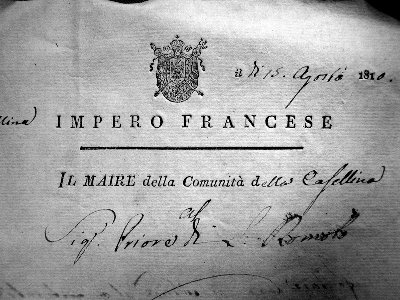 a dì 15. Agosto 1810.
IMPERO FRANCESE
IL MAIRE della Comunità della Casellina
al
Sig.r Priore di S.